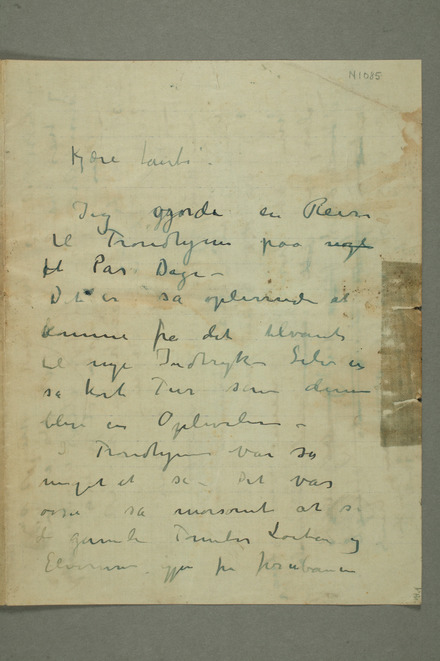 N.1085
Kjære tante.
Jeg gjorde en Reise
til Trondhjem paa nogle
et Par Dage –
Det er så oplivende at
komme fra det tilvante
til nye Indtryk – Selv en
så kort Tur som denne
blir en Oplevelse –
I Trondhjem var så
meget at se – Det var
også så morsomt at se
de gamle Tomter Løiten og
Elverum igjen fra Jernbanen